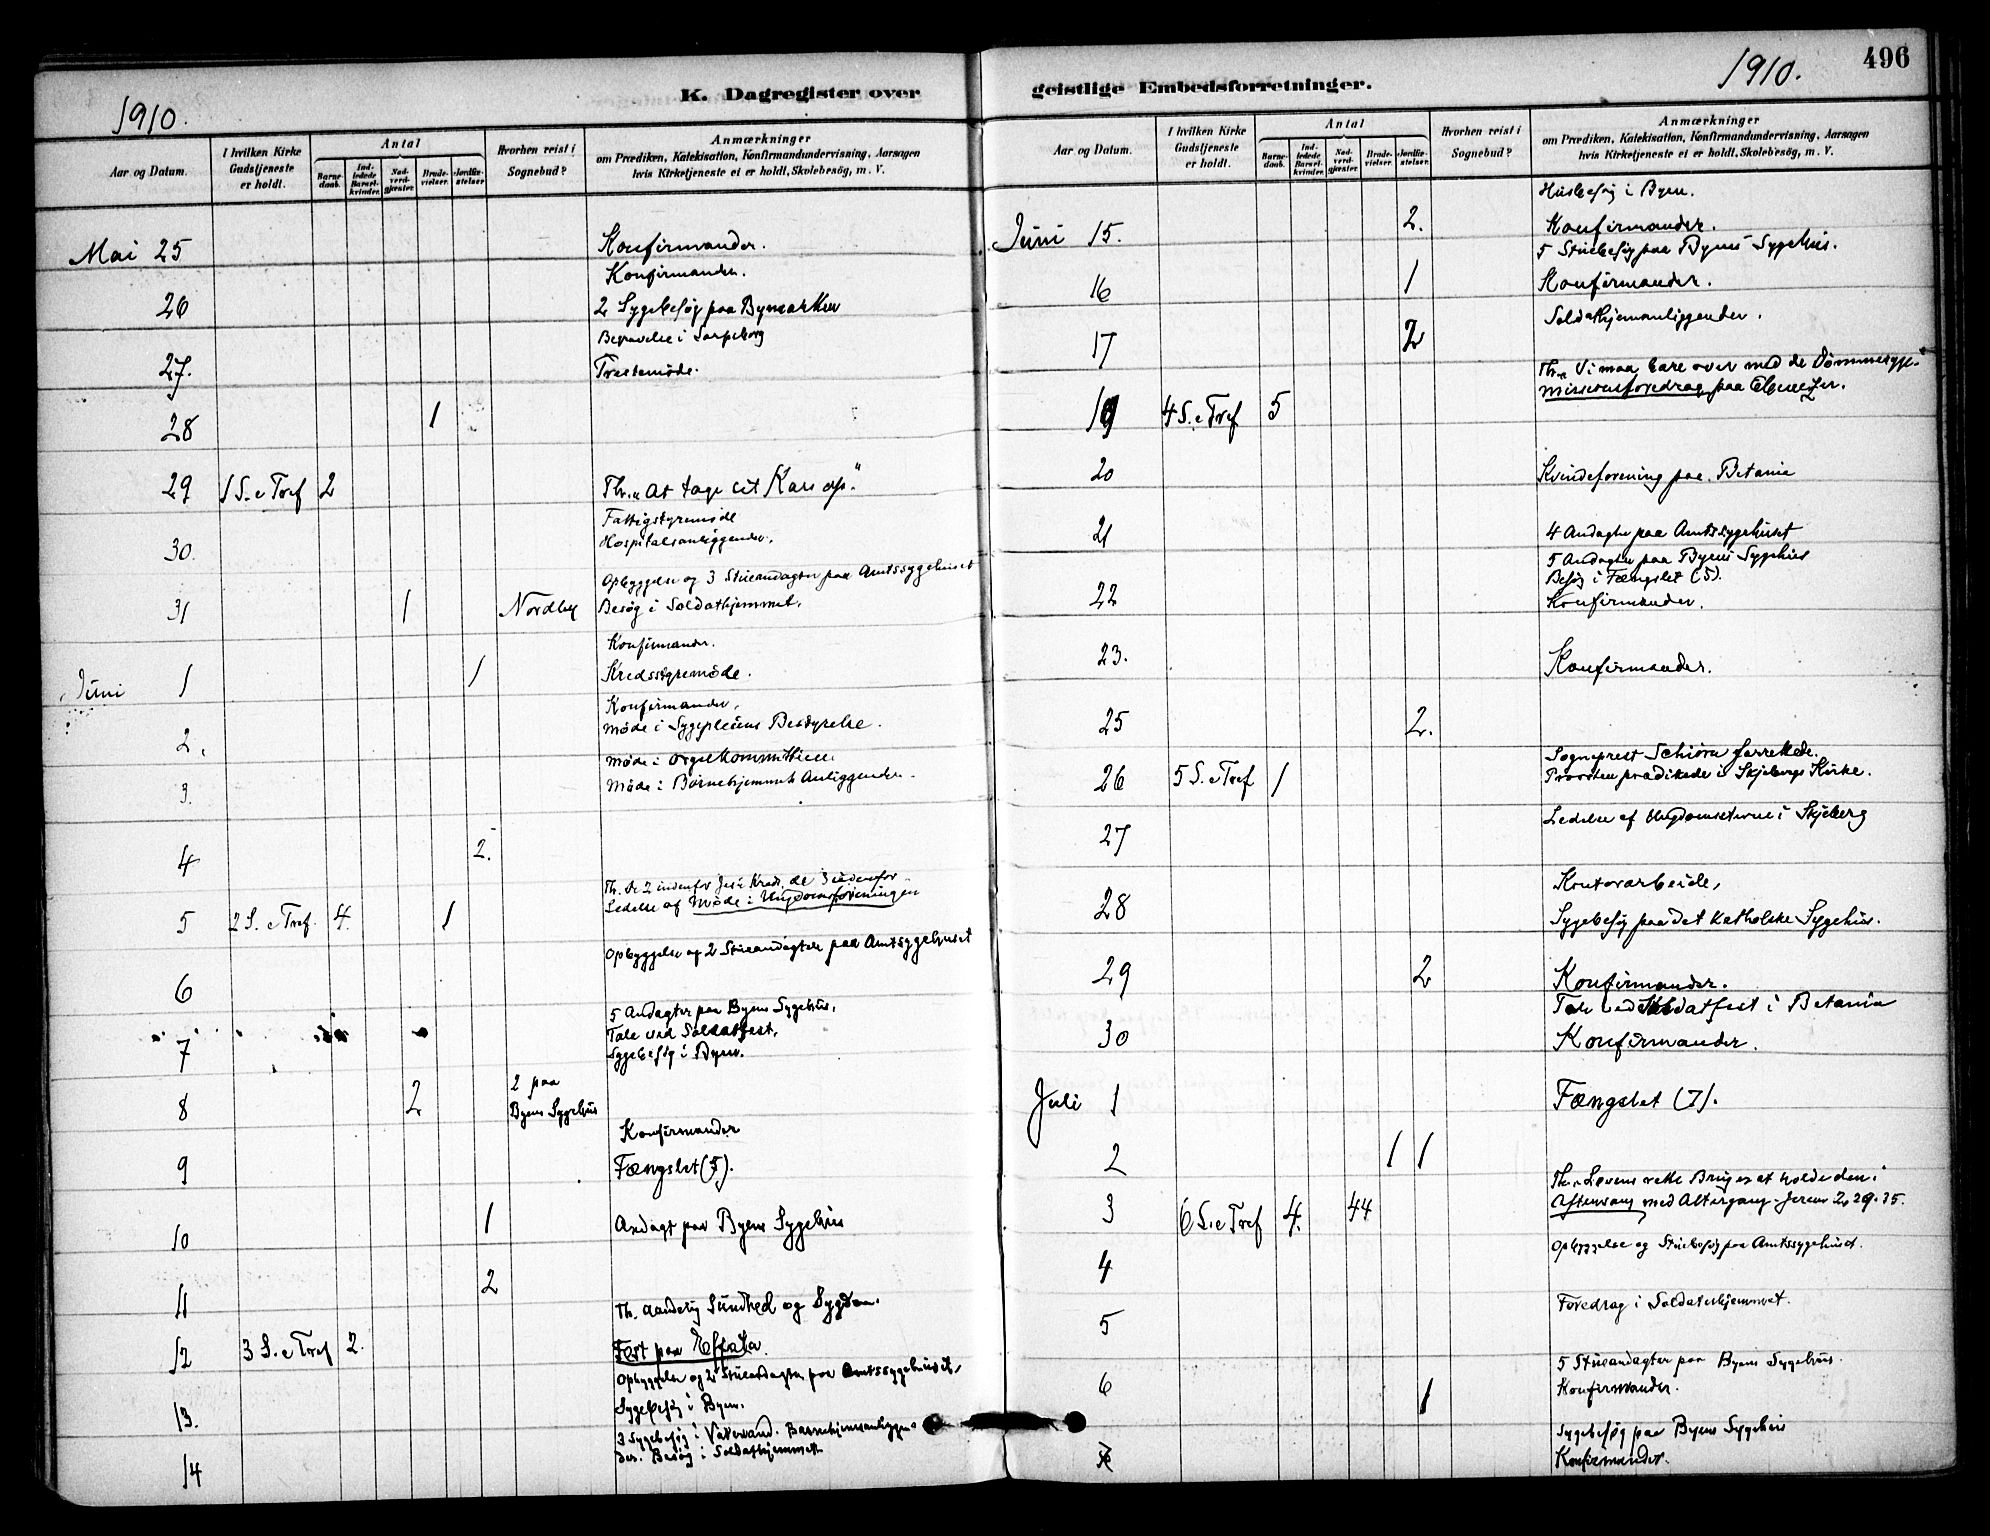 1910.
K. Dagregister over
Aar og Datum.
I hvilken Kirke Gudstjeneste er holdt.
Antal
Barne-daab.
Ind-ledede Barsel-kvinder.
Nad-verd-gjester.
Brude-vielser.
Jordfæ-stelser.
Hvorhen reist i Sognebud?
Anmærkninger
om Prædiken, Katekisation, Konfirmandundervisning, Aarsagen
hvis Kirketjeneste ei er holdt, Skolebesög, m. V.
Mai 25 Konfirmander.
Konfirmander.
26 2 Sygebesøg paa Bymarken
Begravelse i Sarpsborg
27. Prestemøde.
28 1
29 1 S. e Tref 2 Th. "At tage sit Kors op."
Fattigstyremøde
30. Hospitalsanliggender.
Opbyggelse og 3 Stueandagter paa Amtssygehuset
31 1 Nordby Besøg i Soldathjemmet.
Konfirmander.
Juni 1 1 Kredsstyremøde.
Konfirmander.
2. Møde i Sygepleiens Bestyrelse.
Møde i Orgelkommitteen.
3. Møde i Barnehjemmets Anliggender.
4 2.
Th. De 2 indenfor Jesu Kreds, de 3 udenfor
5 2 S. e Tref. 4. 1 Ledelse af Møde i Ungdomsforeningen
Opbyggelse og 2 Stueandagter paa Amtssygehuset
6
5 Andagter paa Byens Sygehus.
Tale ved Soldatfest.
7 Sygebesøg i Byen.
8 2 2 paa Byens Sygehus
Konfirmander
9 Fængslet (5).
10 1 Andagt paa Byens Sygehus
11 2
Th. Aandelig Sundhed og Sygdom.
12 3 S. e Tref 2. Fest paa Effata.
Opbyggelse og 2 Stueandagter paa Amtssygehuset,
13. Sygebesøg i Byen.
3 Sygebesøg i Vaterland. Barnehjemsanliggen-
14 der. Besøg i Soldathjemmet.
geistlige Embedsforretninger.
1910.
496
Aar og Datum.
I hvilken Kirke Gudstjeneste er holdt.
Antal
Barne-daab.
Ind-ledede Barsel-kvinder.
Nad-verd-gjester.
Brude-vielser.
Jordfæ-stelser.
Hvorhen reist i Sognebud?
Anmærkninger
om Prædiken, Katekisation, Konfirmandundervisning, Aarsagen
hvis Kirketjeneste ei er holdt, Skolebesög, m. V.
Husbesøg i Byen.
Juni 15. 2. Konfirmander.
5 Stuebesøg paa Byens Sygehus.
16 1 Konfirmander.
Soldathjemanliggender.
17 2
Th. "Vi maa bare over med de Dømmesyge."
19 4 S. e Tref 5 Missionsforedrag paa Ebenezer.
20 Kvindeforening paa Betania
21 4 Andagter paa Amtssygehuset
5 Andagter paa Byens Sygehus
Besøg i Fængslet (5).
22 Konfirmander.
23. Konfirmander.
25 2.
Sogneprest Schiørn forrettede.
26 5 S. e Tref 1 Provsten prædikede i Skjeberg Kirke.
27 Ledelse af Ungdomsstevne i Skjeberg
Kontorarbeide,
28 Sygebesøg paa det katholske Sygehus.
29 2 Konfirmander.
Tale ved Soldatfest i Betania
30 Konfirmander.
Juli 1 Fængslet (7).
2 1 1
Th. "Lovens rette Brug er at holde den".
3 6 S. e Tref 4. 44 Aftensang med Altergang - Jerem 2. 29. 35.
Opbyggelse og Stuebesøg paa Amtssygehuset.
4
Foredrag i Soldaterhjemmet.
5
5 Stueandagter paa Byens Sygehus.
6 1 Konfirmander.
Sygebesøg paa Byens Sygehus
Konfirmander.